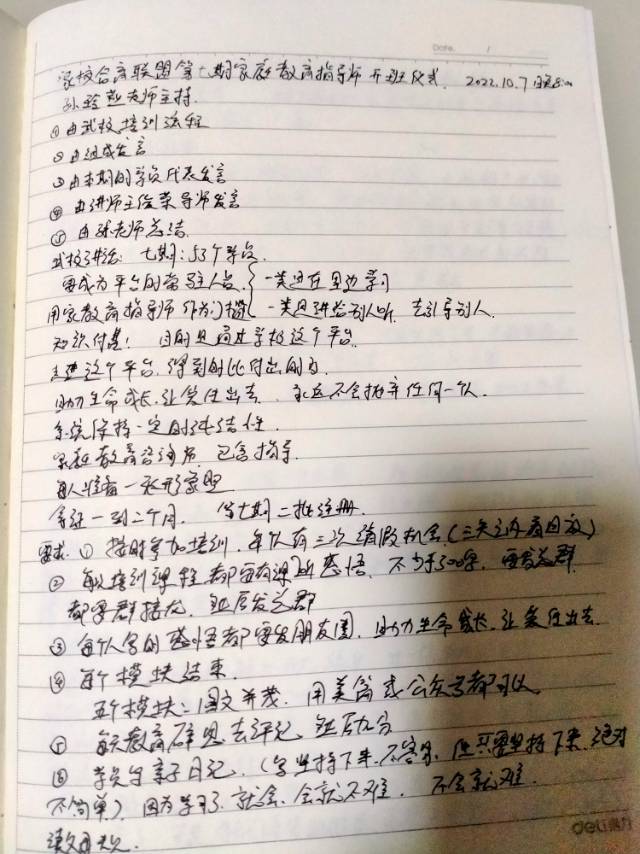 Date. /
家校合育联盟第七期家庭教育指导师开班仪式. 2022.10.7
老师主持.
① 由武校培训流程
② 由组成发言
③ 由本期的学员代表发言
④ 由讲师主任荣导师发言
⑤ 由 老师总结.
武校讲法: 七期: 53个学员
要成为平台的常驻人员 一类是在里边学习
用家教育指导师作为门槛 一类是讲给别人听. 去引导别人.
知识付费! 目的是通过学校这个平台.
走进这个平台. 得到的比付出的多
助力生命成长. 让爱住出去. 永远不会抛弃任何一个人.
系统保持一定的纯洁性.
家庭教育咨询师 包含指导.
每人准备一张形象照
拿证一到二个月. 第七期二批注册.
要求: ① 按时参加培训. 每人有三次请假机会. (三天之内看回放)
② 每次培训课程都要有课后感悟. 不少于300字. 要发总群
都要群接龙. 然后发总群
③ 每个人写的感悟都要发朋友圈. 助力生命成长. 让爱住出去.
④ 每个模块结束.
五个模块: 图文并茂. 用美篇或公众号都可以.
⑤ 每天教育 思去评论. 然后九分
⑥ 学员写亲子日记. (学坚持下来不容易. 但只要坚持下来. 绝对
不简单). 因为学习了就会. 会就不难. 不会就难.
deli得力